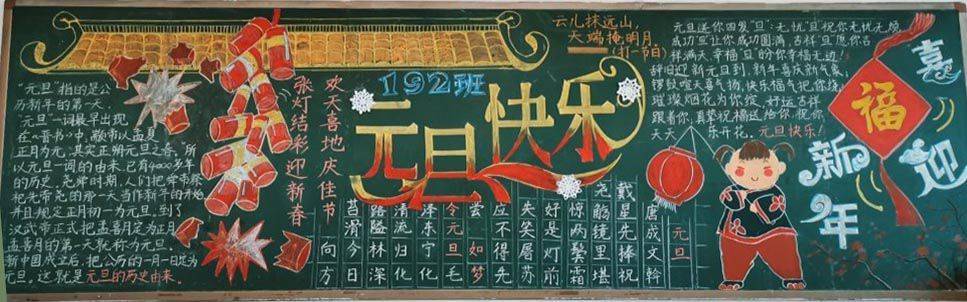 "元旦"指的是公
历新年的第一天。
"元旦"一词最早出现
在《晋书》中,颛帝以孟夏
正月为元,其实正朔元旦之春。所
以元旦一词的由来,已有4000多年
的历史。尧舜时期,人们把舜帝祭
祀先帝尧的那一天当作新年的开始
并且规定正月初一为元旦,到了
汉武帝正式把孟喜月定为正月
孟喜月的第一天就称为元旦。
新中国成立后,把公历的一月一日定为
元旦。这就是元旦的历史由来。
欢天喜地庆佳节
张灯结彩迎新春
192班
元旦快乐
云儿抹远山,
天端掩明月
(打一节日)
元旦
唐成文幹
戴星先捧祝
尧觞镜里堪
惊两鬓霜
好是灯前
失笑屠苏
应不得先
尝 如梦
令元旦毛
泽东宁化
清流归化
路隘林深
苔滑今日
向方
元旦送你四发"旦":无忧"旦"祝你无忧无烦
成功旦让你成功圆满,吉祥旦愿你吉
祥满天,幸福旦盼你幸福无边!
辞旧迎新元旦到,新年喜庆新气象;
锣鼓喧天喜气扬,快乐福气把你绕;
璀璨烟花为你绽,好运吉祥
跟着你,真挚祝福送给你,祝你
天天 乐开花。元旦快乐!
福
喜迎
新年